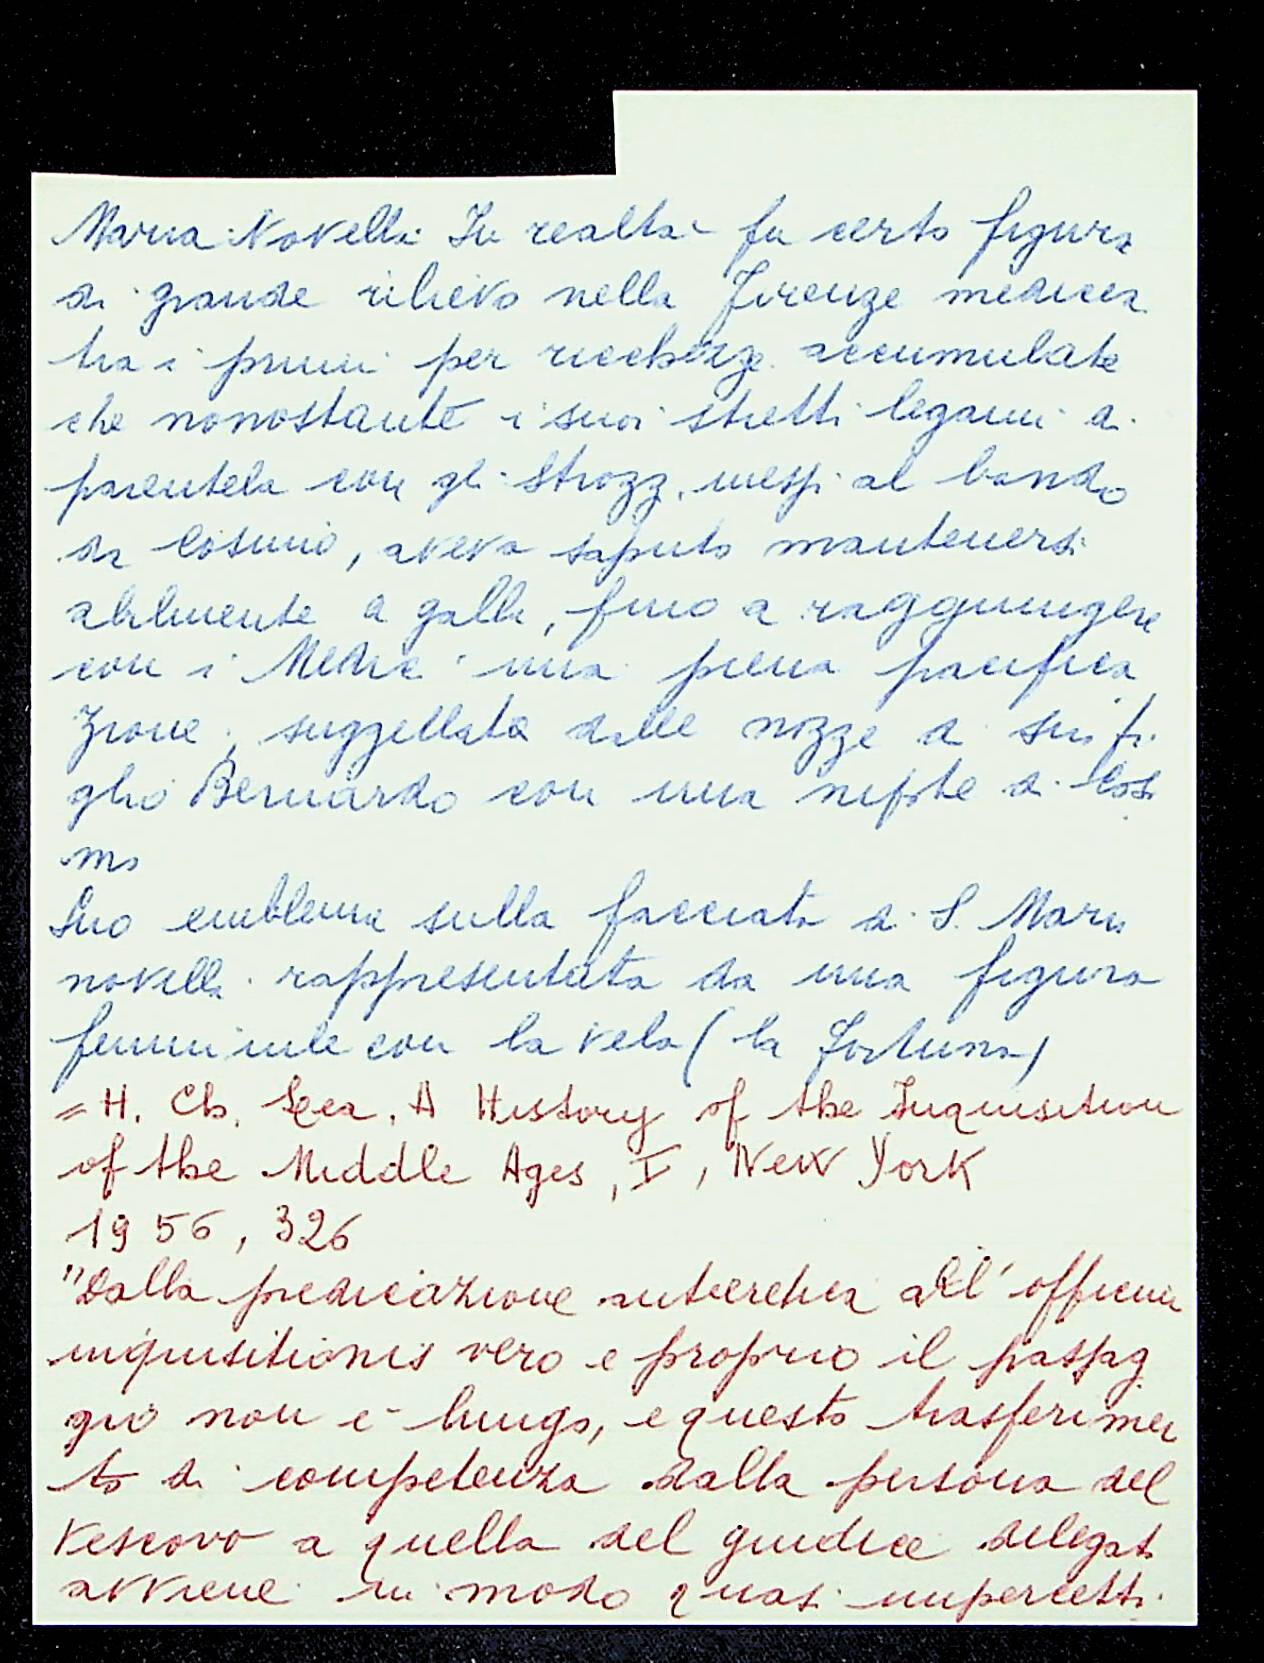 Maria Novella In realtà fu certo figura
di grande rilievo nella Firenze medicea
tra i primi per ricchezze accumulate
che nonostante i suoi stretti legami di
parentela con gli Strozzi, messi al bando
da Cosimo, aveva saputo mantenersi
abilmente a galla, fino a raggiungere
con i Medici una piena pacifica
zione, suggellata dalle nozze di suo fi
glio Bernardo con una nipote di Cosi
mo
Suo emblema sulla facciata di S. Maria
novella rappresentata da una figura
femminile con la vela (la Fortuna)
= H. Ch. Lea, A History of the Inquisition
of the Middle Ages, I, New York
1956, 326
"Dalla predicazione antieretica all'officium
inquisitionis vero e proprio il passag
gio non è lungo, e questo trasferimen
to di competenza dalla persona del
vescovo a quella del giudice delegato
avviene in modo quasi impercetti